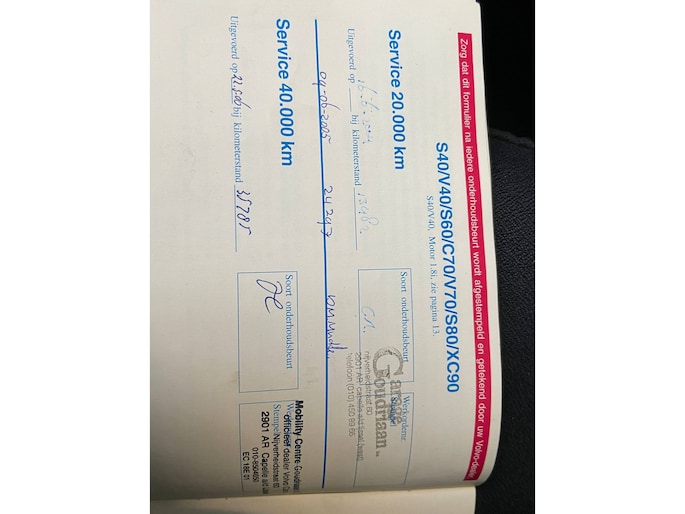 Zorg dat dit formulier na iedere onderhoudsbeurt wordt afgestempeld en getekend door uw Volvo-dealer
S40/V40/S60/C70/V70/S80/XC90
S40/V40, Motor 1.8i, zie pagina 13.
Service 20.000 km
Uitgevoerd op bij kilometerstand
Soort onderhoudsbeurt
Werkordernr
Garage
Goudriaan
nijverheidstraat 60
2901 AR capelle a/d ijssel
telefoon (010) 450 99 66
04-06-2005 24297
Service 40.000 km
Uitgevoerd op bij kilometerstand 35785
Soort onderhoudsbeurt
Mobility Centre Goudriaan
officieel dealer Volvo
Stempel Nijverheidstraat 60
2901 AR Capelle a/d
010-8504650